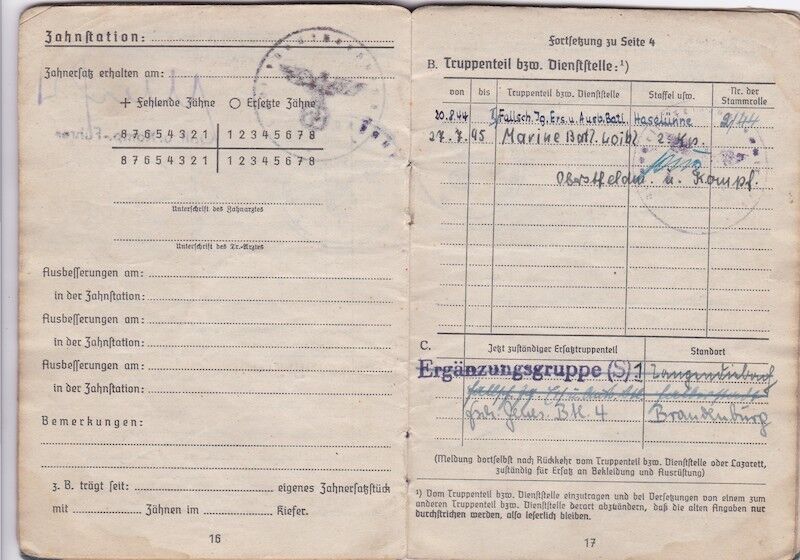 Zahnstation:
Zahnersatz erhalten am:
+ Fehlende Zähne ○ Ersetzte Zähne
8 7 6 5 4 3 2 1 | 1 2 3 4 5 6 7 8
8 7 6 5 4 3 2 1 | 1 2 3 4 5 6 7 8
Unterschrift des Zahnarztes
Unterschrift des Tr.-Arztes
Ausbesserungen am:
in der Zahnstation:
Ausbesserungen am:
in der Zahnstation:
Ausbesserungen am:
in der Zahnstation:
Bemerkungen:
z. B. trägt seit: eigenes Zahnersatzstück
mit Zähnen im Kiefer.
16
Fortsetzung zu Seite 4
B. Truppenteil bzw. Dienststelle:¹)
von bis Truppenteil bzw. Dienststelle Staffel usw. Nr. der Stammrolle
20.8.44 Fallsch. Jg. Ers. u. Ausb. Batl. Haselünne 2/44
27.7.45 Marine Batl. Loibl
u. Kompf.
C. Jetzt zuständiger Ersatztruppenteil Standort
Ergänzungsgruppe (S) 1 Langendiebach
Btl. 4 Brandenburg
(Meldung dortselbst nach Rückkehr vom Truppenteil bzw. Dienststelle oder Lazarett,
zuständig für Ersatz an Bekleidung und Ausrüstung)
¹) Vom Truppenteil bzw. Dienststelle einzutragen und bei Versetzungen von einem zum
anderen Truppenteil bzw. Dienststelle derart abzuändern, daß die alten Angaben nur
durchstrichen werden, also leserlich bleiben.
17